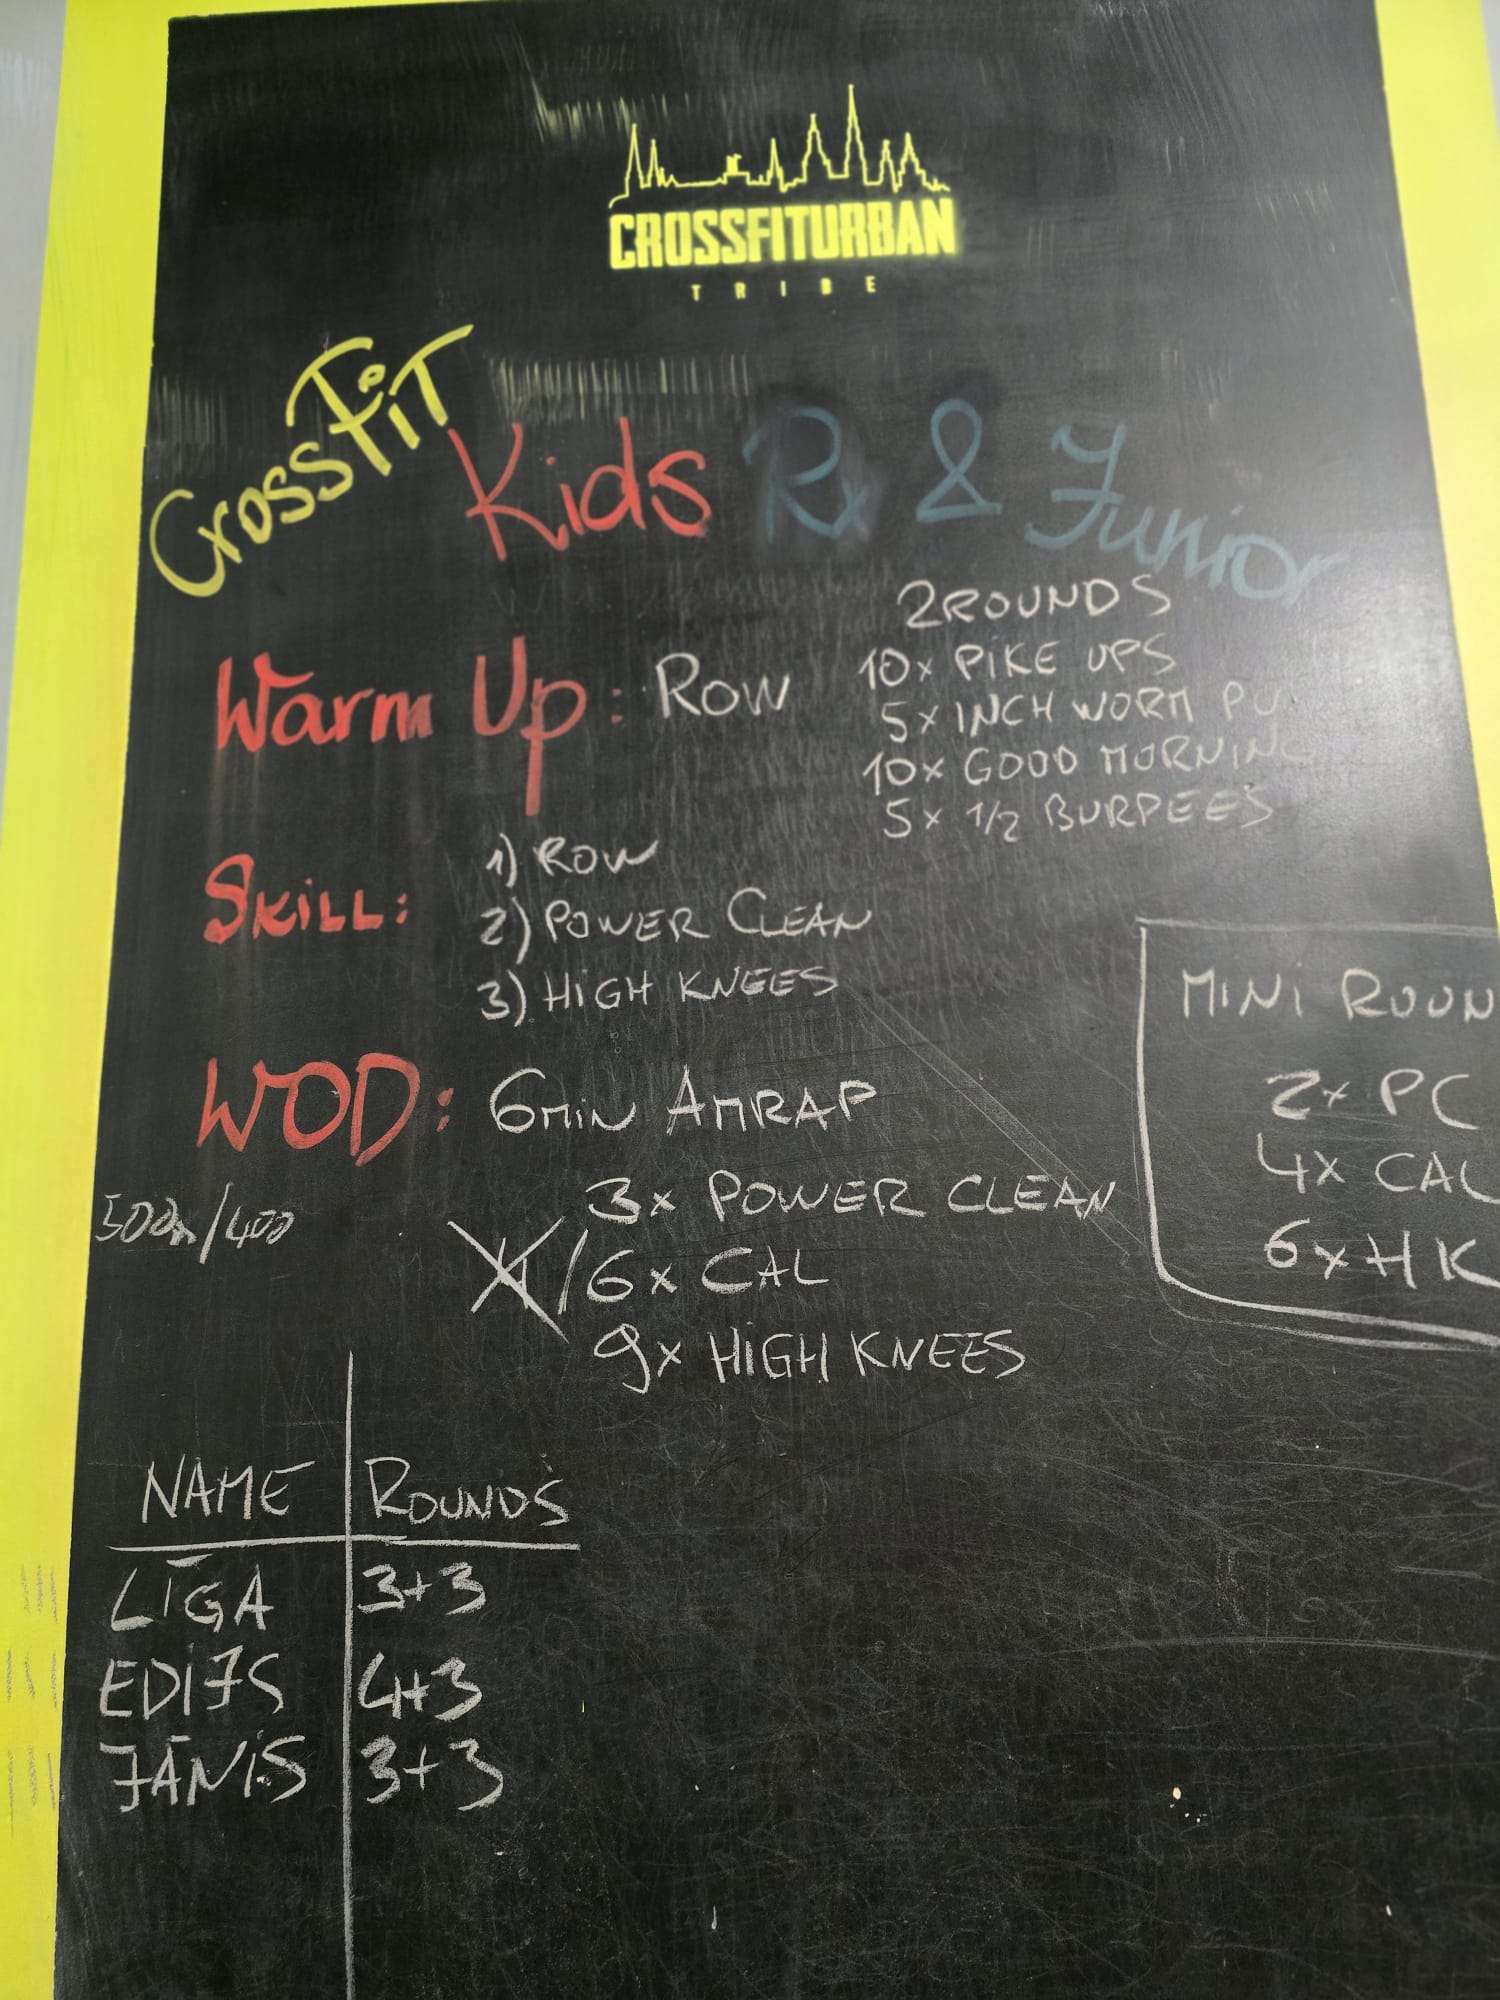 CROSSFITURBAN
TRIBE
CrossFit Kids Rx & Junior
Warm Up: Row
2 ROUNDS
10x PIKE UPS
5x INCH WORM PU
10x GOOD MORNING
5x 1/2 BURPEES
SKILL:
1) ROW
2) POWER CLEAN
3) HIGH KNEES
WOD: 6min AMRAP
3x POWER CLEAN
/6x CAL
9x HIGH KNEES
500m/400
MINI ROUN
2x PC
4x CAL
6x HK
NAME ROUNDS
LĪGA 3+3
EDIJS 4+3
JĀNIS 3+3